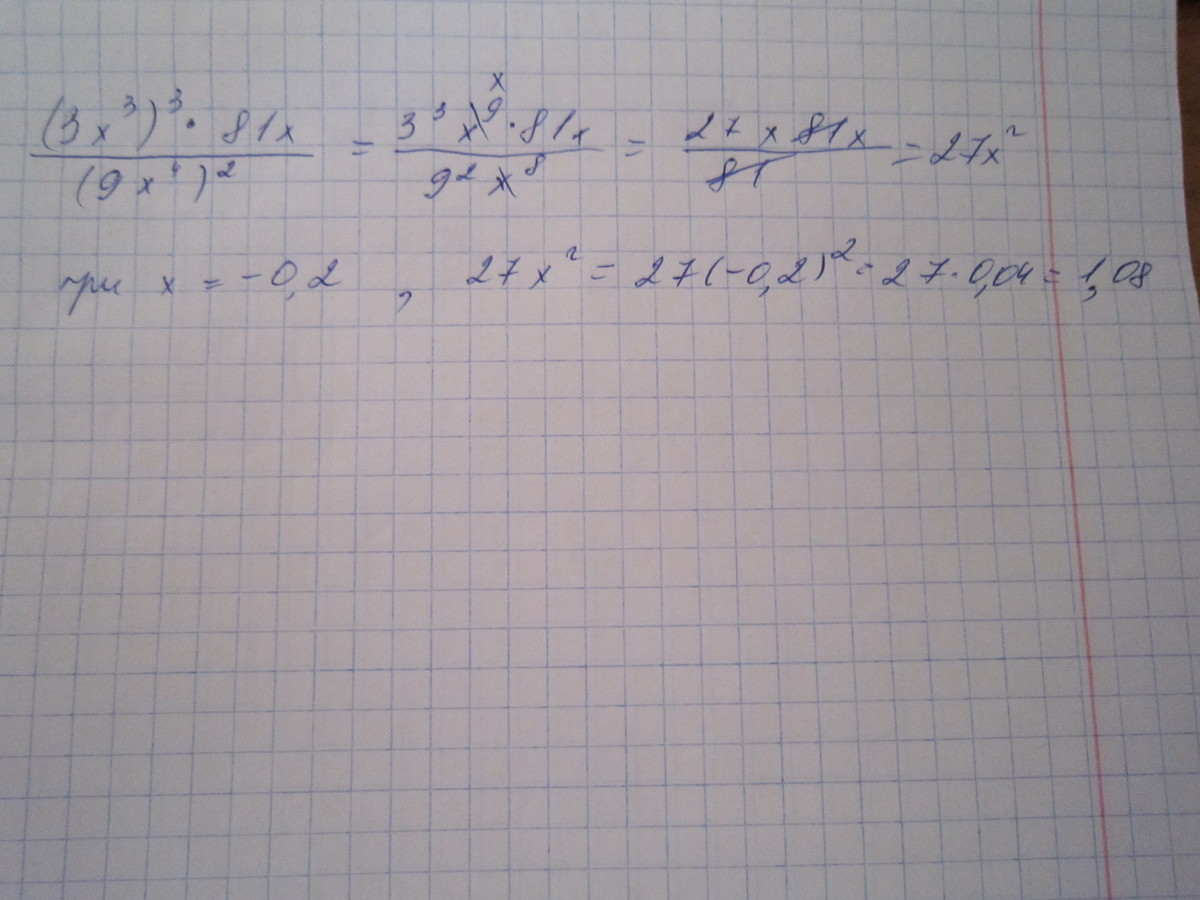 (3x³)³ · 81x / (9x⁴)² = 3³x⁹ · 81x / 9²x⁸ = 27x81x / 81 = 27x²
при x = -0,2 , 27x² = 27(-0,2)² = 27·0,04 = 1,08